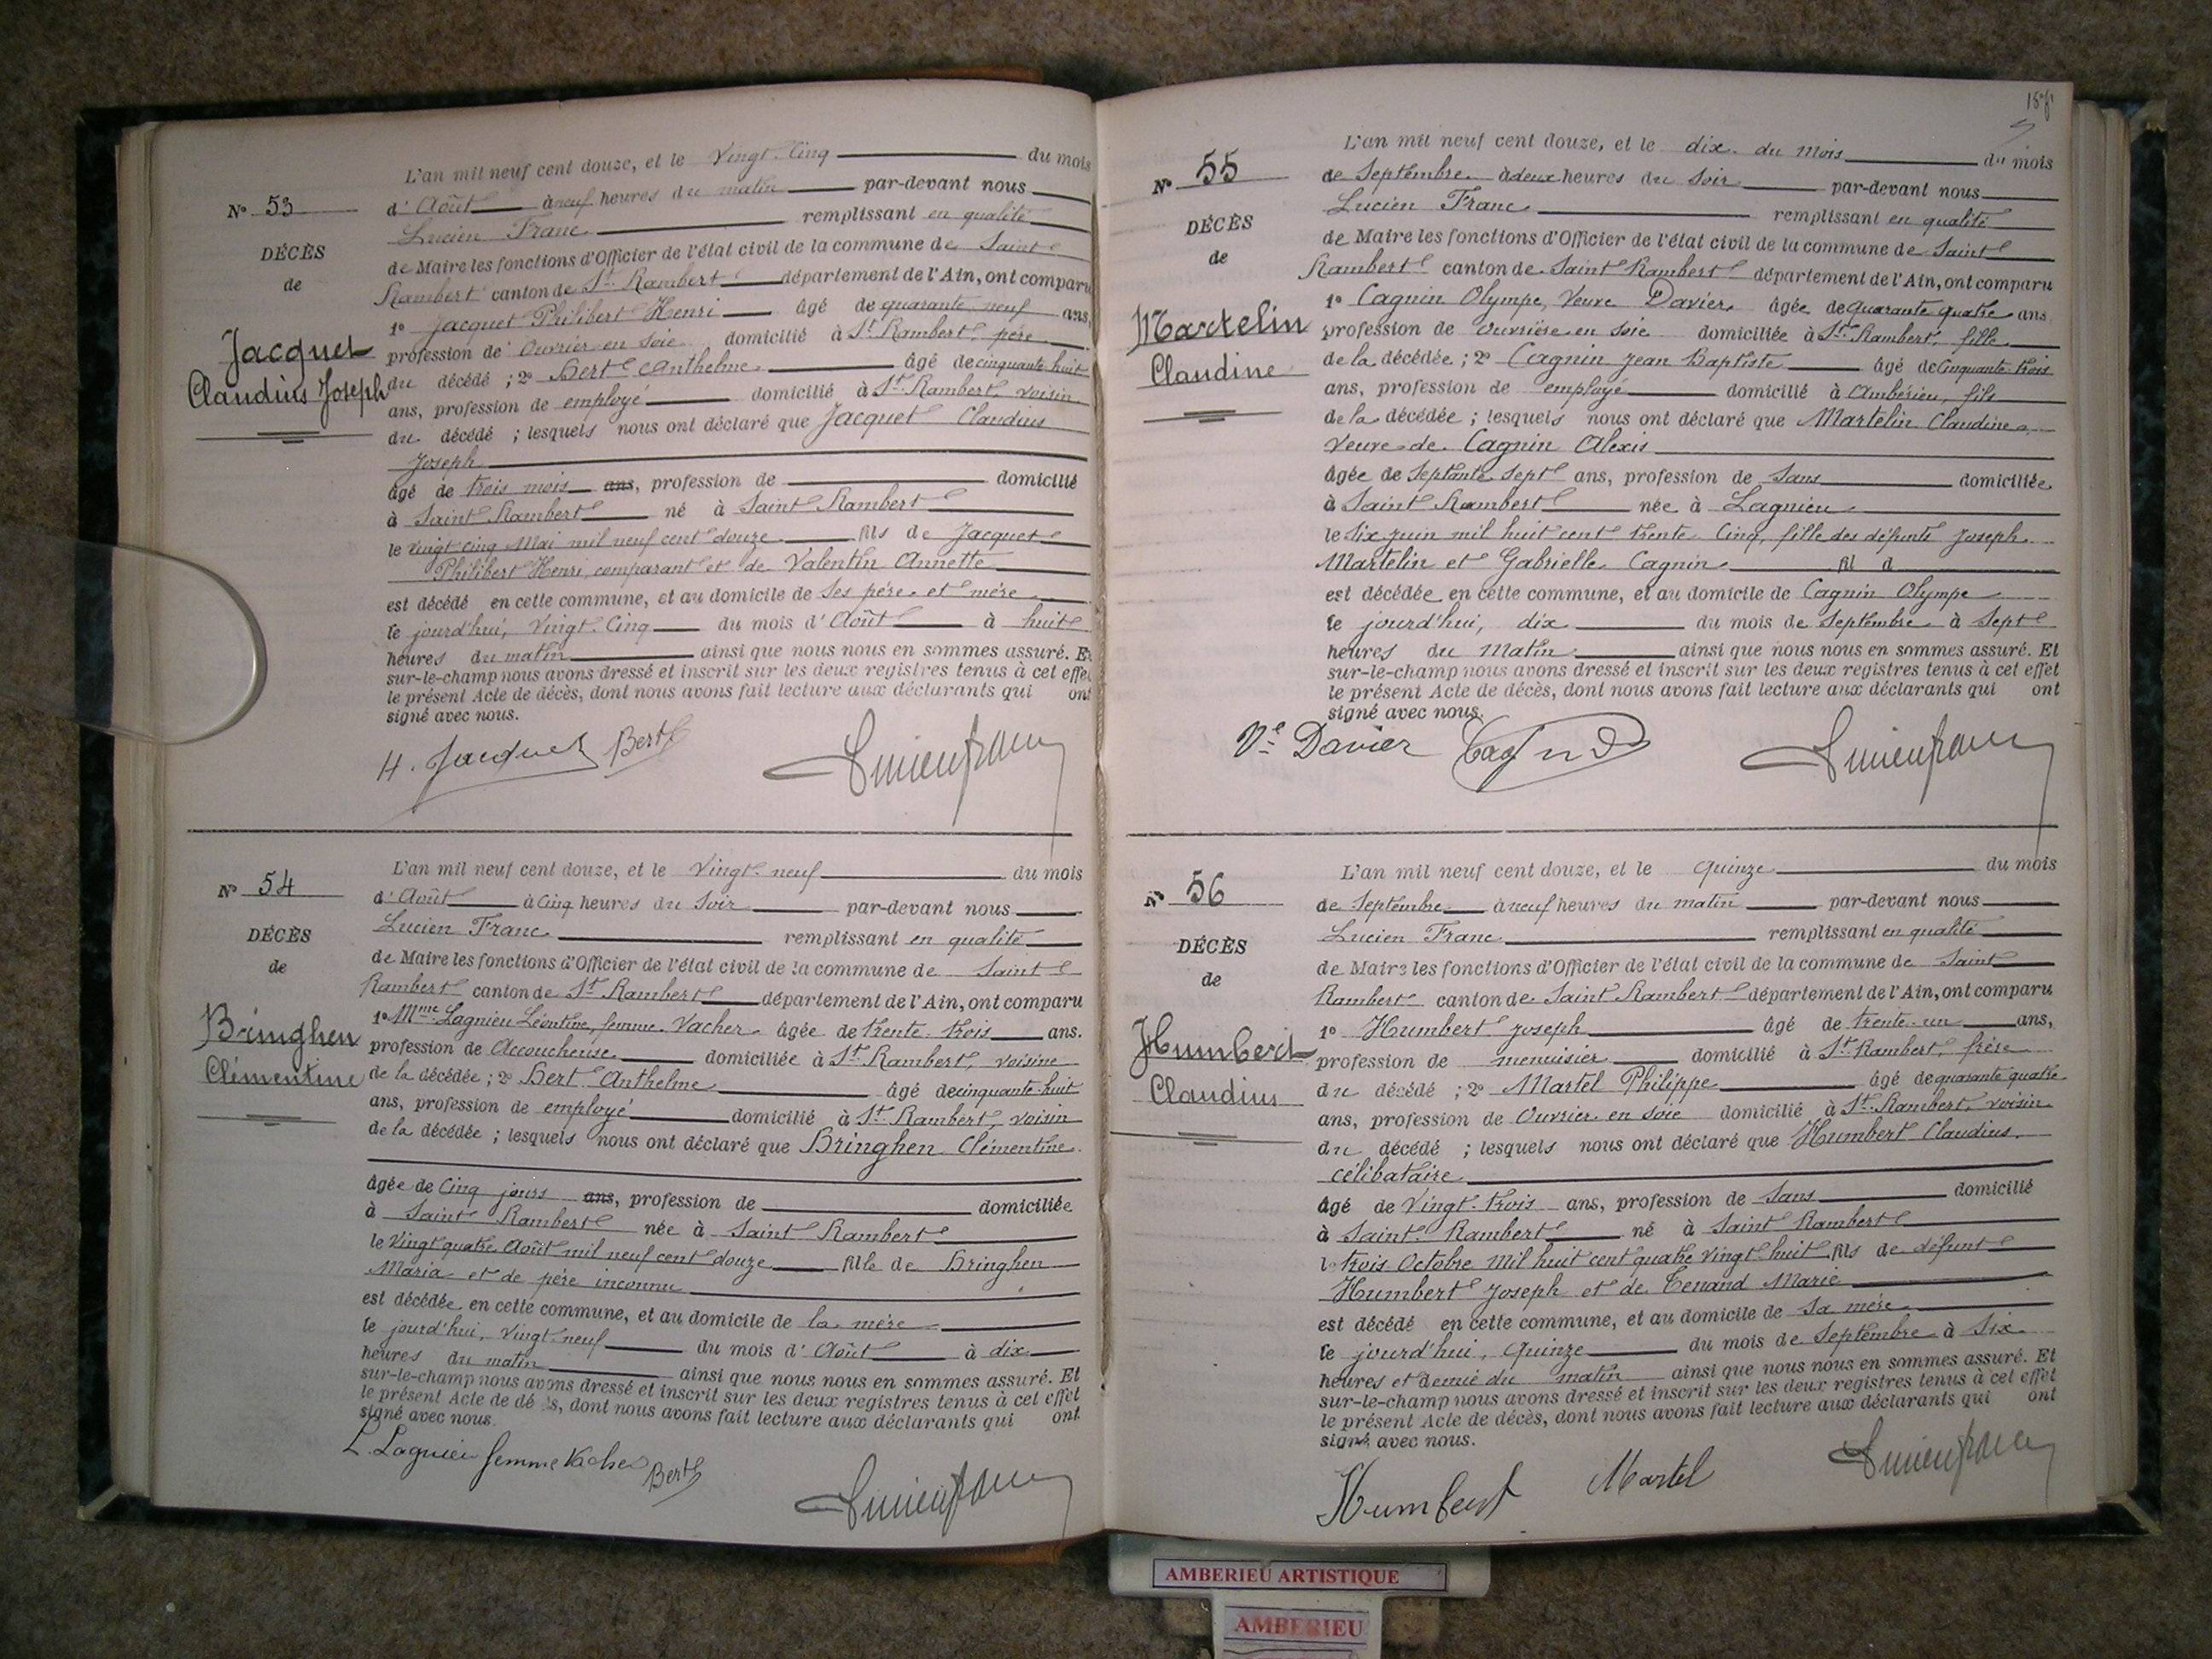 N° 53
DÉCÈS
de
Jacquet
Claudius Joseph
L'an mil neuf cent douze, et le Vingt-Cinq du mois
d'Août à neuf heures du matin par-devant nous
Lucien Franc remplissant en qualité
de Maire les fonctions d'Officier de l'état civil de la commune de Saint
Rambert canton de St Rambert département de l'Ain, ont comparu
1° Jacquet Philibert Henri âgé de quarante neuf ans,
profession de Ouvrier en soie domicilié à St Rambert, père
du décédé ; 2° Bert Anthelme âgé de cinquante huit
ans, profession de employé domicilié à St Rambert, voisin
du décédé ; lesquels nous ont déclaré que Jacquet Claudius
Joseph
âgé de trois mois ans, profession de domicilié
à Saint Rambert né à Saint Rambert
le vingt cinq Mai mil neuf cent douze fils de Jacquet
Philibert Henri, comparant et de Valentin Annette
est décédé en cette commune, et au domicile de Ses père et mère
le jourd'hui, Vingt-Cinq du mois d'Août à huit
heures du matin ainsi que nous nous en sommes assuré. Et
sur-le-champ nous avons dressé et inscrit sur les deux registres tenus à cet effet
le présent Acte de décès, dont nous avons fait lecture aux déclarants qui ont
signé avec nous.
H. Jacquet Bert Lucien franc
N° 54
DÉCÈS
de
Bringhen
Clémentine
L'an mil neuf cent douze, et le Vingt-neuf du mois
d'Août à Cinq heures du Soir par-devant nous
Lucien Franc remplissant en qualité
de Maire les fonctions d'Officier de l'état civil de la commune de Saint
Rambert canton de St Rambert département de l'Ain, ont comparu
1° Mme Lagnieu Léontine, femme Vacher âgée de trente-trois ans.
profession de Accoucheuse domiciliée à St Rambert, voisine
de la décédée ; 2° Bert Anthelme âgé de cinquante-huit
ans, profession de employé domicilié à St Rambert, voisin
de la décédée ; lesquels nous ont déclaré que Bringhen Clémentine
âgée de Cinq jours ans, profession de domiciliée
à Saint Rambert née à Saint Rambert
le Vingt quatre Août mil neuf cent douze fille de Bringhen
Maria et de père inconnu
est décédée en cette commune, et au domicile de la mère
le jourd'hui, Vingt-neuf du mois d'Août à dix
heures du matin ainsi que nous nous en sommes assuré. Et
sur-le-champ nous avons dressé et inscrit sur les deux registres tenus à cet effet
le présent Acte de dé s, dont nous avons fait lecture aux déclarants qui ont
signé avec nous.
L. Lagnieu femme Vacher Bert Lucien franc
N° 55
DÉCÈS
de
Martelin
Claudine
L'an mil neuf cent douze, et le dix du mois du mois
de Septembre à deux heures du Soir par-devant nous
Lucien Franc remplissant en qualité
de Maire les fonctions d'Officier de l'état civil de la commune de Saint
Rambert canton de Saint Rambert département de l'Ain, ont comparu
1° Cagnin Olympe, Veuve Davier âgée de quarante quatre ans
profession de Ouvrière en soie domiciliée à St Rambert, fille
de la décédée ; 2° Cagnin Jean Baptiste âgé de Cinquante-trois
ans, profession de employé domicilié à Ambérieu, fils
de la décédée ; lesquels nous ont déclaré que Martelin Claudine
Veuve de Cagnin Alexis
âgée de Septante Sept ans, profession de Sans domiciliée
à Saint Rambert née à Lagnieu
le Six juin mil huit cent trente Cinq, fille des défunts Joseph
Martelin et Gabrielle Cagnin fil d
est décédée en cette commune, et au domicile de Cagnin Olympe
le jourd'hui, dix du mois de Septembre à Sept
heures du Matin ainsi que nous nous en sommes assuré. Et
sur-le-champ nous avons dressé et inscrit sur les deux registres tenus à cet effet
le présent Acte de décès, dont nous avons fait lecture aux déclarants qui ont
signé avec nous.
Ve Davier Lucien franc
N° 56
DÉCÈS
de
Humbert
Claudius
L'an mil neuf cent douze, et le quinze du mois
de Septembre à neuf heures du matin par-devant nous
Lucien Franc remplissant en qualité
de Maire les fonctions d'Officier de l'état civil de la commune de Saint
Rambert canton de Saint Rambert département de l'Ain, ont comparu
1° Humbert Joseph âgé de trente-un ans,
profession de menuisier domicilié à St Rambert, frère
du décédé ; 2° Martel Philippe âgé de quarante quatre
ans, profession de Ouvrier en soie domicilié à St Rambert, voisin
du décédé ; lesquels nous ont déclaré que Humbert Claudius,
célibataire
âgé de Vingt-trois ans, profession de Sans domicilié
à Saint Rambert né à Saint Rambert
le trois Octobre mil huit cent quatre Vingt-huit fils de défunt
Humbert Joseph et de Tenand Marie
est décédé en cette commune, et au domicile de Sa mère
le jourd'hui, quinze du mois de Septembre à Six
heures et demie du matin ainsi que nous nous en sommes assuré. Et
sur-le-champ nous avons dressé et inscrit sur les deux registres tenus à cet effet
le présent Acte de décès, dont nous avons fait lecture aux déclarants qui ont
signé avec nous.
Humbert Martel Lucien franc
AMBERIEU ARTISTIQUE
AMBERIEU